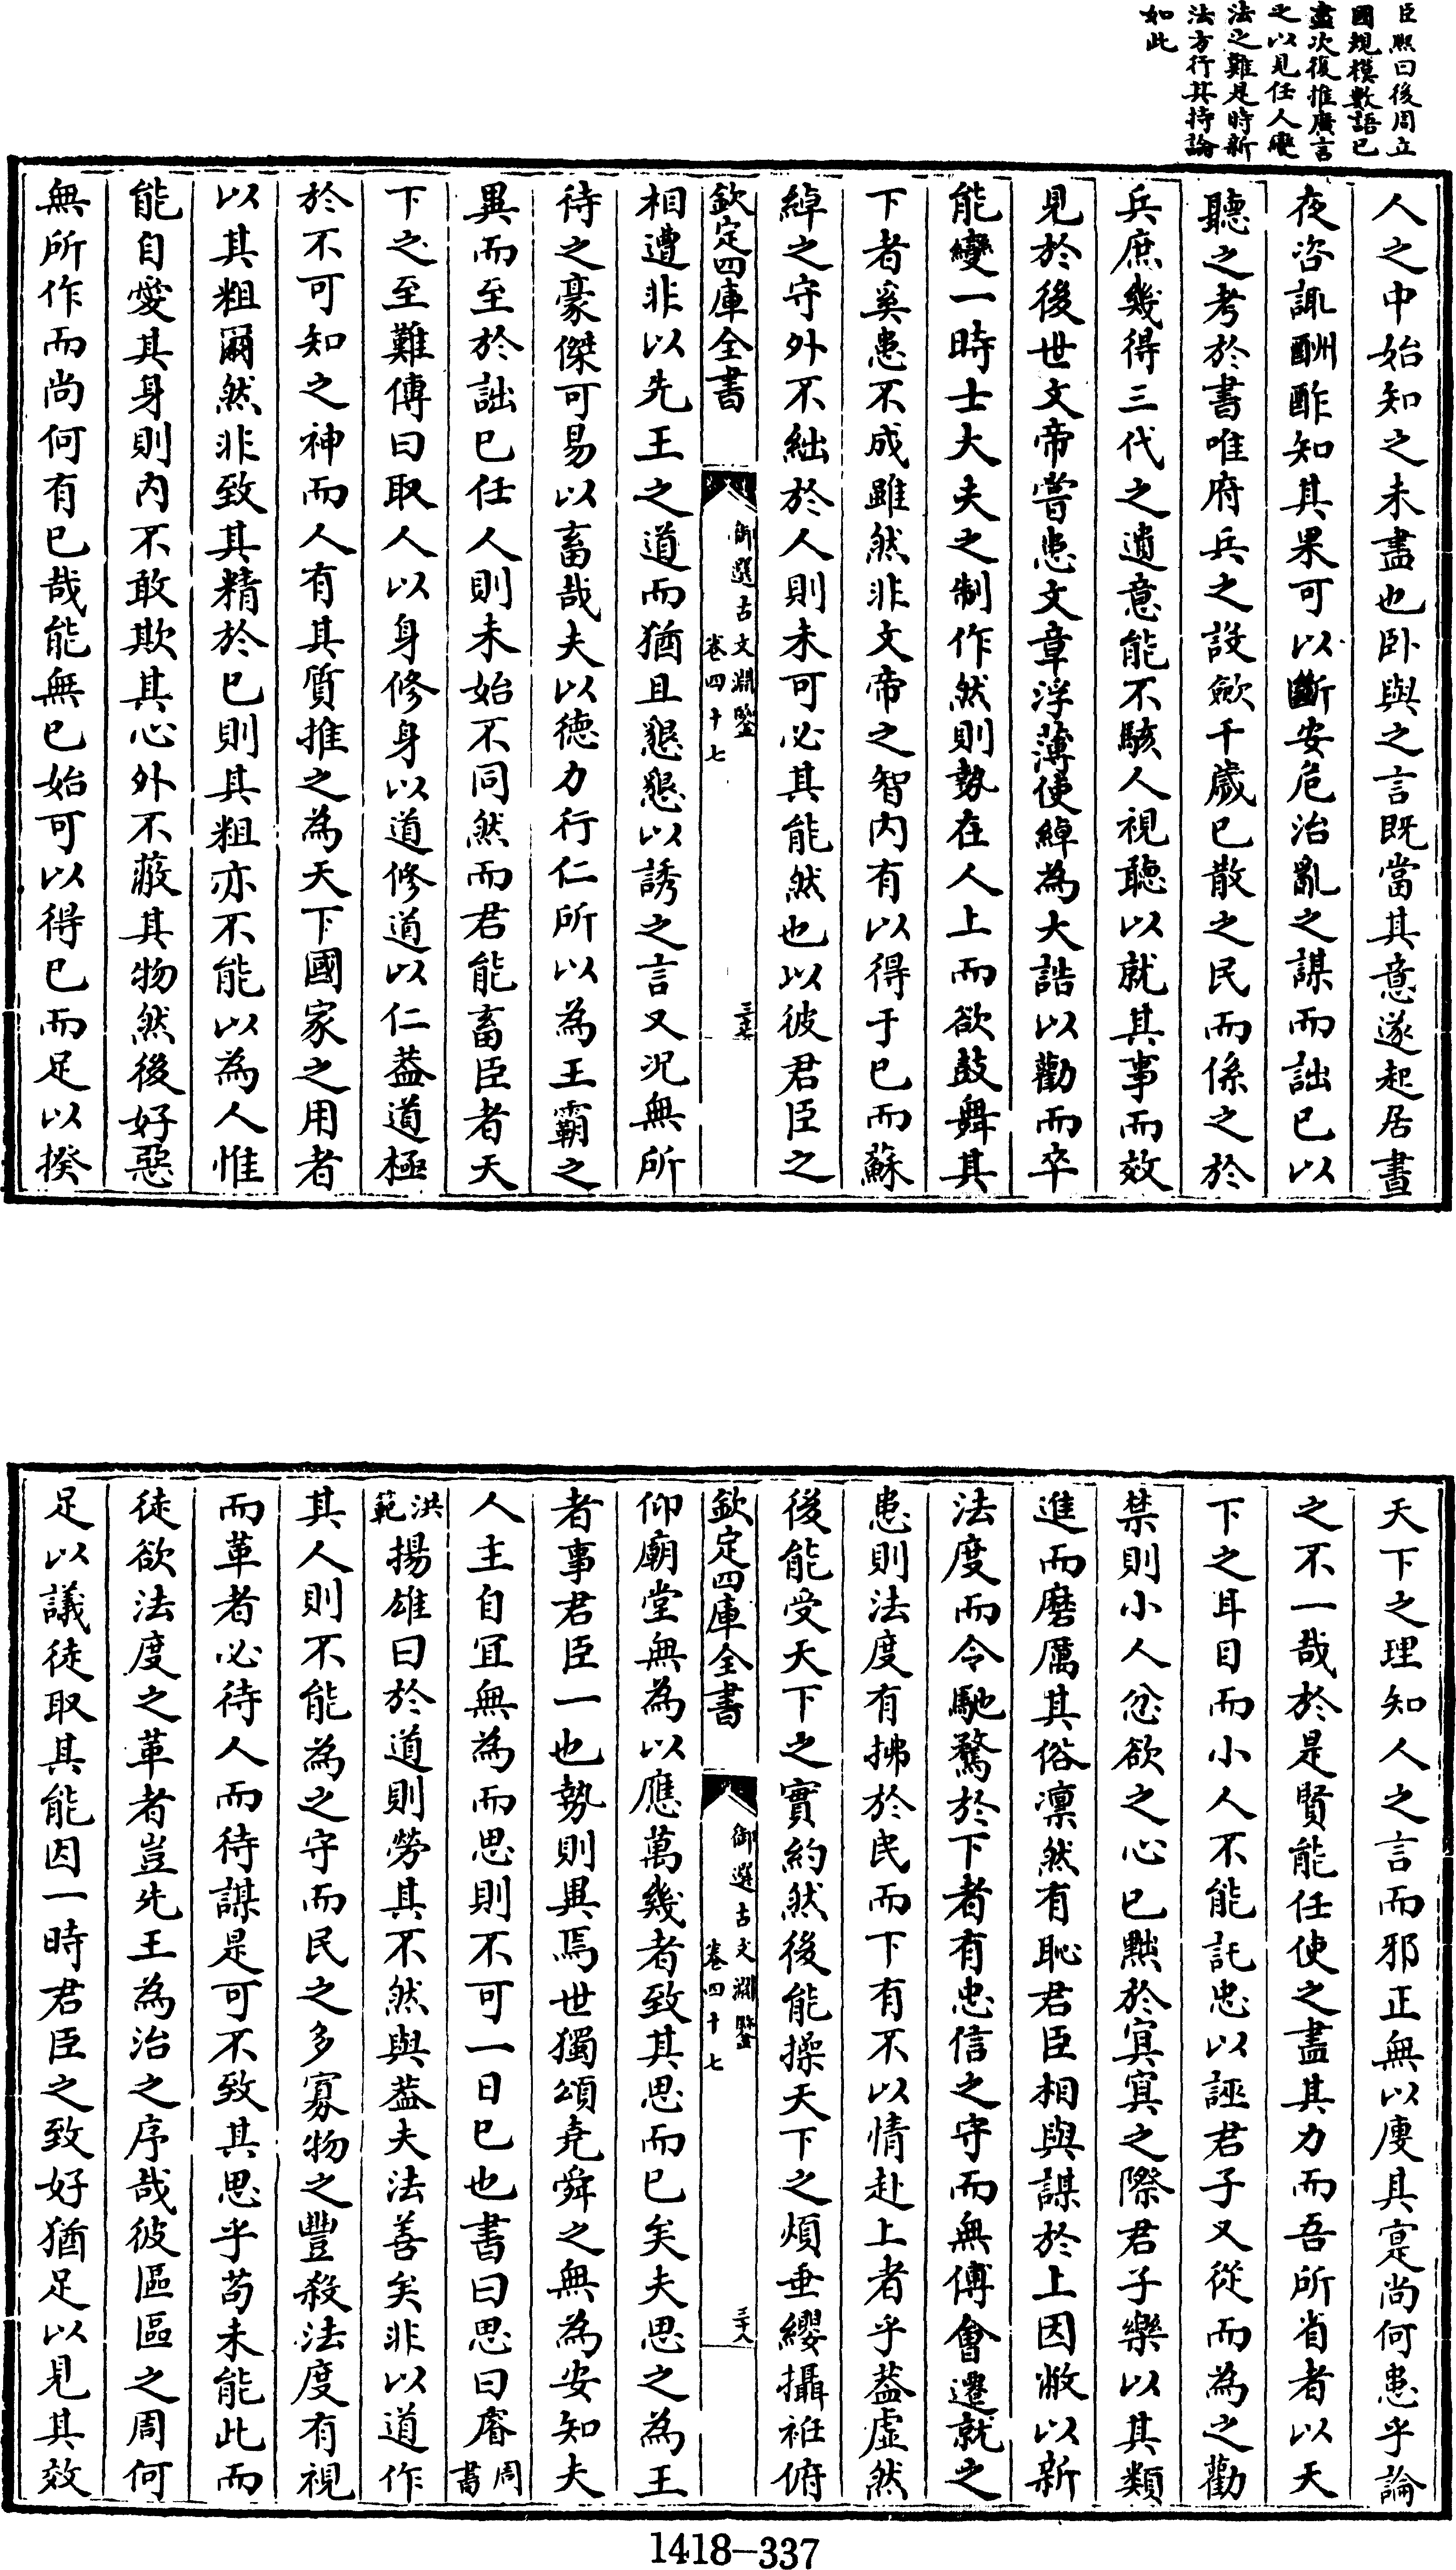 臣熙曰後周立
國規模數語已
盡次復推廣言
之以見任人變
法之難是時新
法方行其持論
如此
人之中始知之未盡也卧與之言既當其意遂起居晝
夜咨諏酬酢知其果可以斷安危治亂之謀而詘已以
聽之考於書唯府兵之設歛千歲已散之民而係之於
兵庶幾得三代之遺意能不駭人視聽以就其事而效
見於後世文帝嘗患文章浮薄使綽為大誥以勸而卒
能變一時士大夫之制作然則勢在人上而欲鼓舞其
下者奚患不成雖然非文帝之智内有以得于已而蘇
綽之守外不絀於人則未可必其能然也以彼君臣之
欽定四庫全書
御選古文淵鑒
卷四十七
三十七
相遭非以先王之道而猶且懇懇以誘之言又况無所
待之豪傑可易以畜哉夫以德力行仁所以為王霸之
異而至於詘已任人則未始不同然而君能畜臣者天
下之至難傳曰取人以身修身以道修道以仁葢道極
於不可知之神而人有其質推之為天下國家之用者
以其粗爾然非致其精於已則其粗亦不能以為人惟
能自愛其身則内不敢欺其心外不蔽其物然後好惡
無所作而尚何有已哉能無已始可以得已而足以揆
天下之理知人之言而邪正無以廋其寔尚何患乎論
之不一哉於是賢能任使之盡其力而吾所省者以天
下之耳目而小人不能託忠以誣君子又從而為之勸
禁則小人忿欲之心已黜於冥冥之際君子樂以其類
進而磨厲其俗凛然有恥君臣相與謀於上因敝以新
法度而令馳騖於下者有忠信之守而無傅會遷就之
患則法度有拂於民而下有不以情赴上者乎葢虚然
後能受天下之實約然後能操天下之煩垂纓攝袵俯
欽定四庫全書
御選古文淵鑒
卷四十七
三十八
仰廟堂無為以應萬幾者致其思而已矣夫思之為王
者事君臣一也勢則異焉世獨頌堯舜之無為安知夫
人主自冝無為而思則不可一日已也書曰思曰睿周書
洪範揚雄曰於道則勞其不然與葢夫法善矣非以道作
其人則不能為之守而民之多寡物之豐殺法度有視
而革者必待人而待謀是可不致其思乎苟未能此而
徒欲法度之革者豈先王為治之序哉彼區區之周何
足以議徒取其能因一時君臣之致好猶足以見其效
1418-337